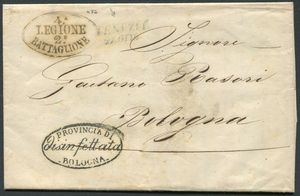 4.ª
LEGIONE
2.º
BATTAGLIONE
VENEZIA
Signore
Gaetano Rasori
Bologna
PROVINCIA DI
Disinfettata
BOLOGNA